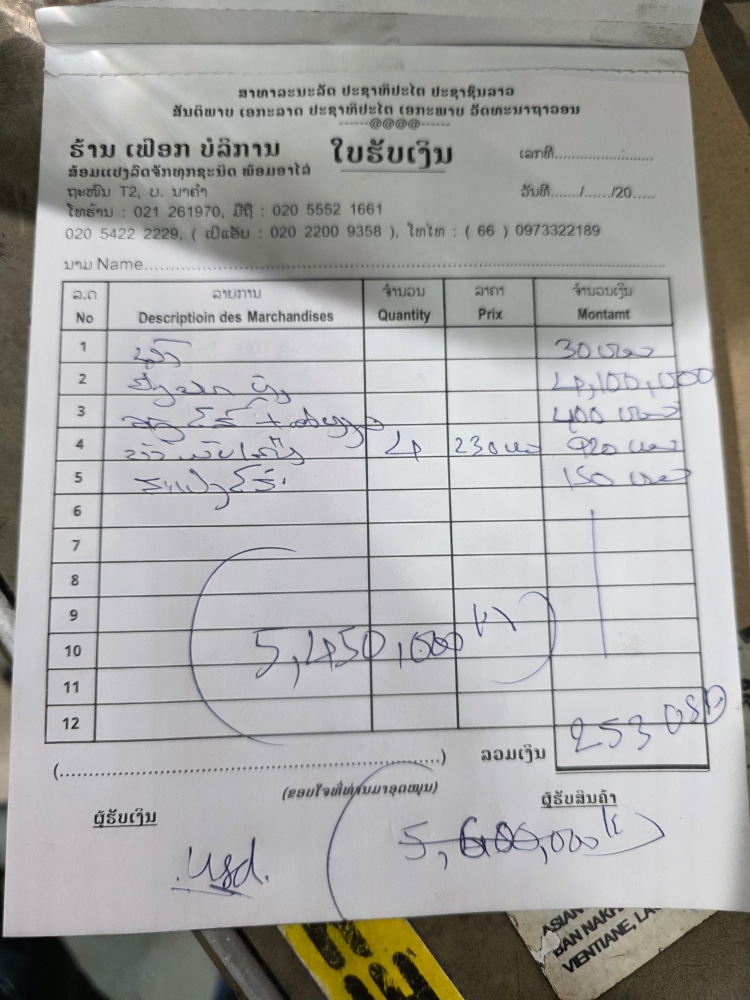 ສາທາລະນະລັດ ປະຊາທິປະໄຕ ປະຊາຊົນລາວ
ສັນຕິພາບ ເອກະລາດ ປະຊາທິປະໄຕ ເອກະພາບ ວັດທະນາຖາວອນ
------@@@@------
ຮ້ານ ເຝືອກ ບໍລິການ
ໃບຮັບເງິນ
ເລກທີ..........................
ສ້ອມແປງລົດຈັກທຸກຊະນິດ ພ້ອມອາໄລ່
ວັນທີ......./....../20.....
ຖະໜົນ T2, ບ. ນາຄຳ
ໂທຮ້ານ : 021 261970, ມືຖື : 020 5552 1661
020 5422 2229, ( ເບີແອັບ : 020 2200 9358 ), ໂທໄທ : ( 66 ) 0973322189
ນາມ Name..........................
ລ.ດ ລາຍການ ຈຳນວນ ລາຄາ ຈຳນວນເງິນ
No Descriptioin des Marchandises Quantity Prix Montamt
1 30
2 4,100,000
3 400
4 4 230 920
5 150
6
7
8
9
10 5,450,000
11
12
253 USD
(..........................) ລວມເງິນ
(ຂອບໃຈທີ່ທ່ານມາອຸດໜຸນ)
ຜູ້ຮັບເງິນ ຜູ້ຮັບສິນຄ້າ
5,600,000
usd.
ASIAN
BAN NAKH
VIENTIANE, LA